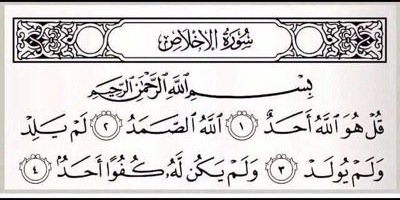 سُورَةُ الإِخْلَاصِ
بِسْمِ اللَّهِ الرَّحْمَٰنِ الرَّحِيمِ
قُلْ هُوَ اللَّهُ أَحَدٌ ١ اللَّهُ الصَّمَدُ ٢ لَمْ يَلِدْ
وَلَمْ يُولَدْ ٣ وَلَمْ يَكُن لَّهُۥ كُفُوًا أَحَدٌۢ ٤